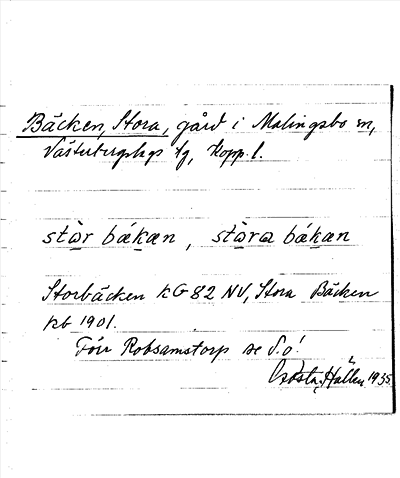 Bäcken, Stora, gård i Malingsbo sn,
Västerbergslags tg, Kopp. l.
stàr bákæn, stàra bákæn
Storbäcken KG 82 NV, Stora Bäcken
kb 1901.
Förr Robsamstorp se d.o!
Gösta Hallén 1935.